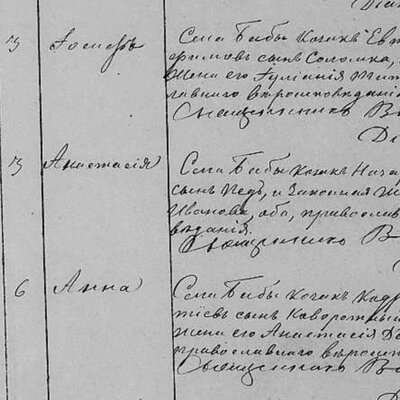 3 Іосифъ Села Бабы козакъ Евт
фимовъ сынъ Соломка,
жена его Іуліанія
славнаго вѣроисповѣданія
Священникъ В
Ді
3 Анастасія Села Бабы козакъ Наза
сынъ и законная ж
Иванова, оба, православ
вѣданія.
Священникъ В
6 Анна Села Бабы козакъ Кодр
тіевъ сынъ Коворотный
жена его Анастасія
православнаго вѣроисп
Священникъ В
Ді